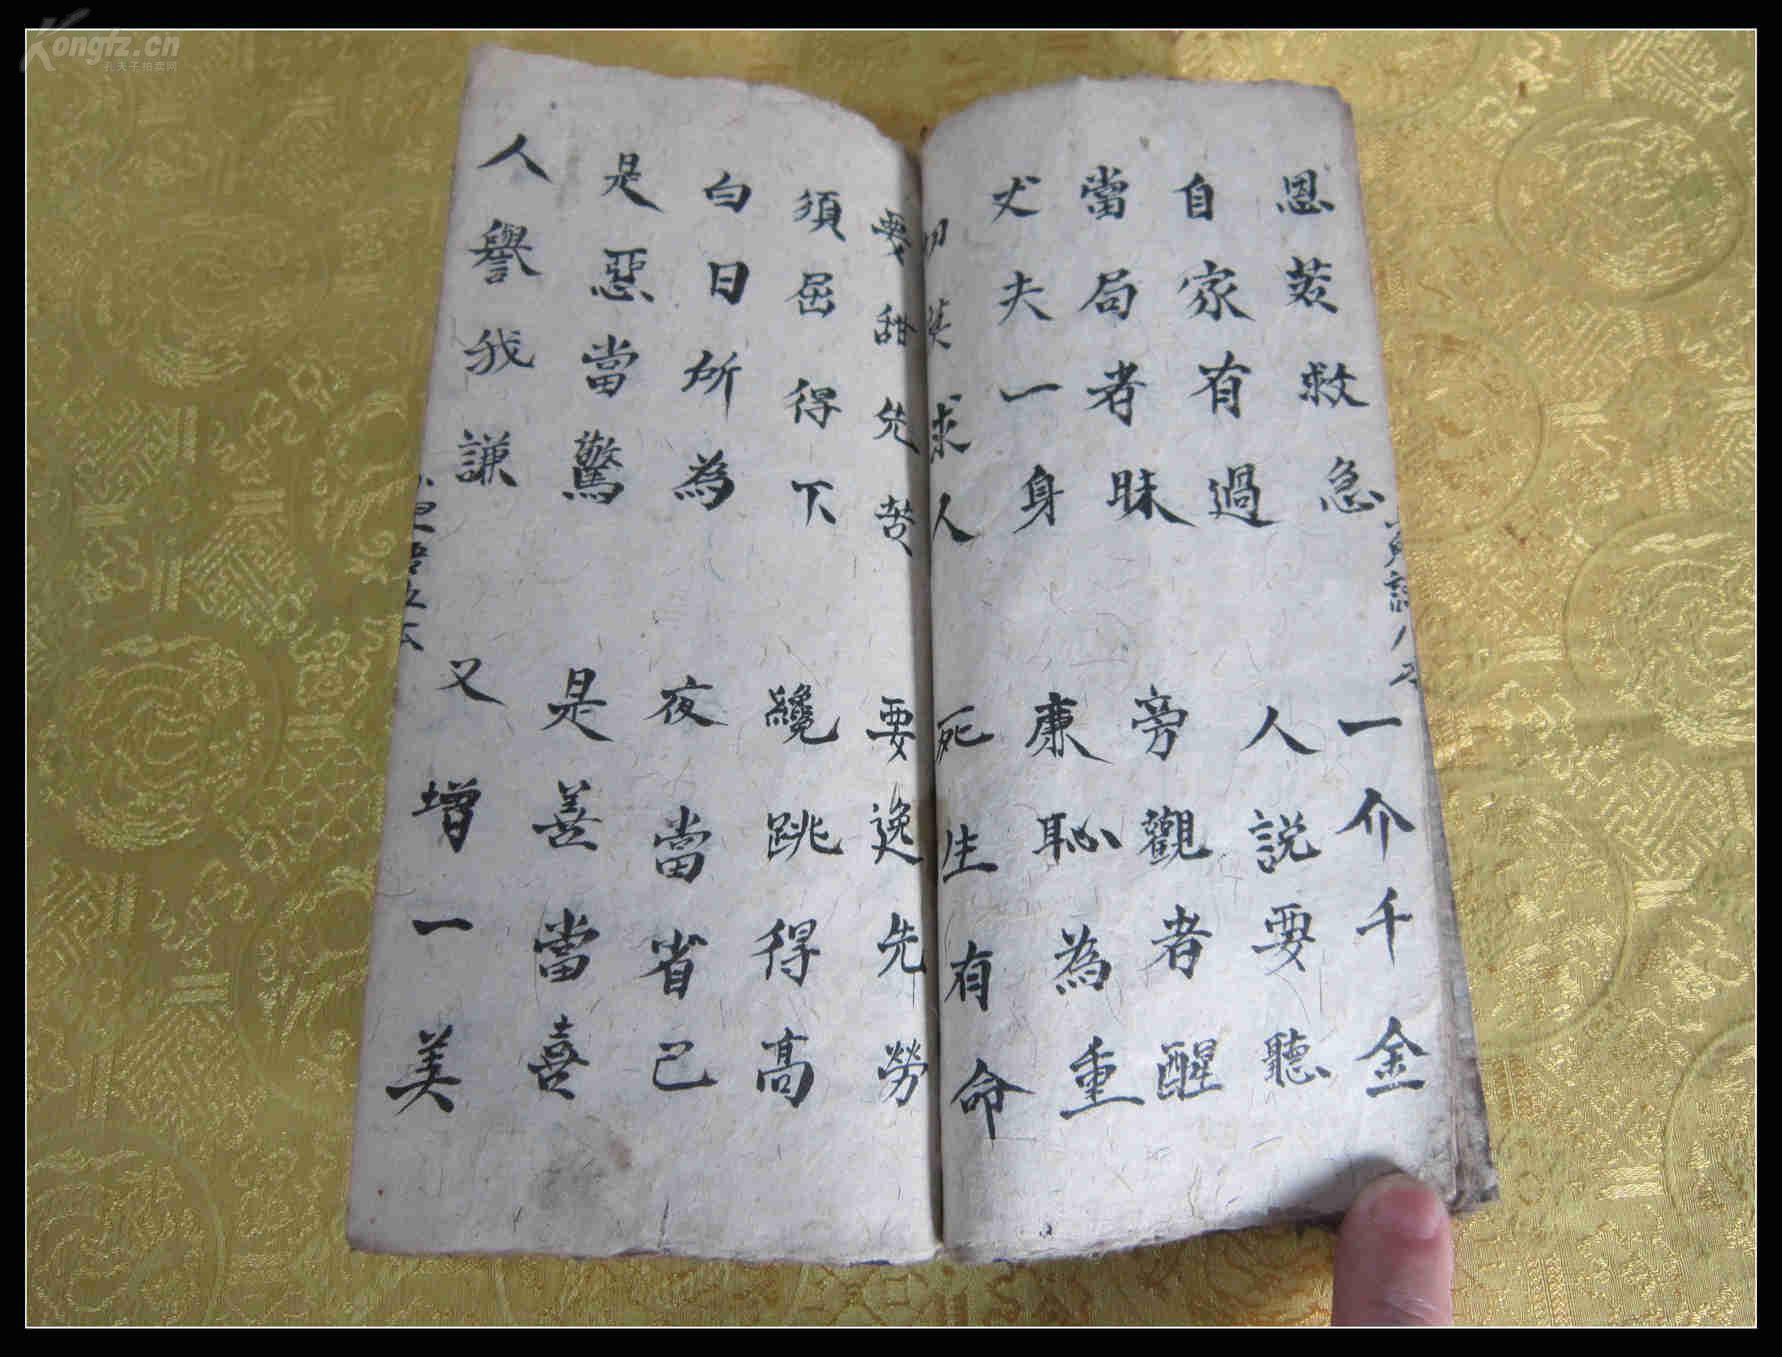 Kongfz.cn
孔夫子拍卖网
恩若救急 一介千金
自家有過 人說要聽
當局者昧 旁觀者醒
丈夫一身 廉恥為重
切莫求人 死生有命
要甜先苦 要逸先勞
須屈得下 纔跳得高
白日所為 夜當省己
是惡當驚 是善當喜
人譽我謙 又增一美